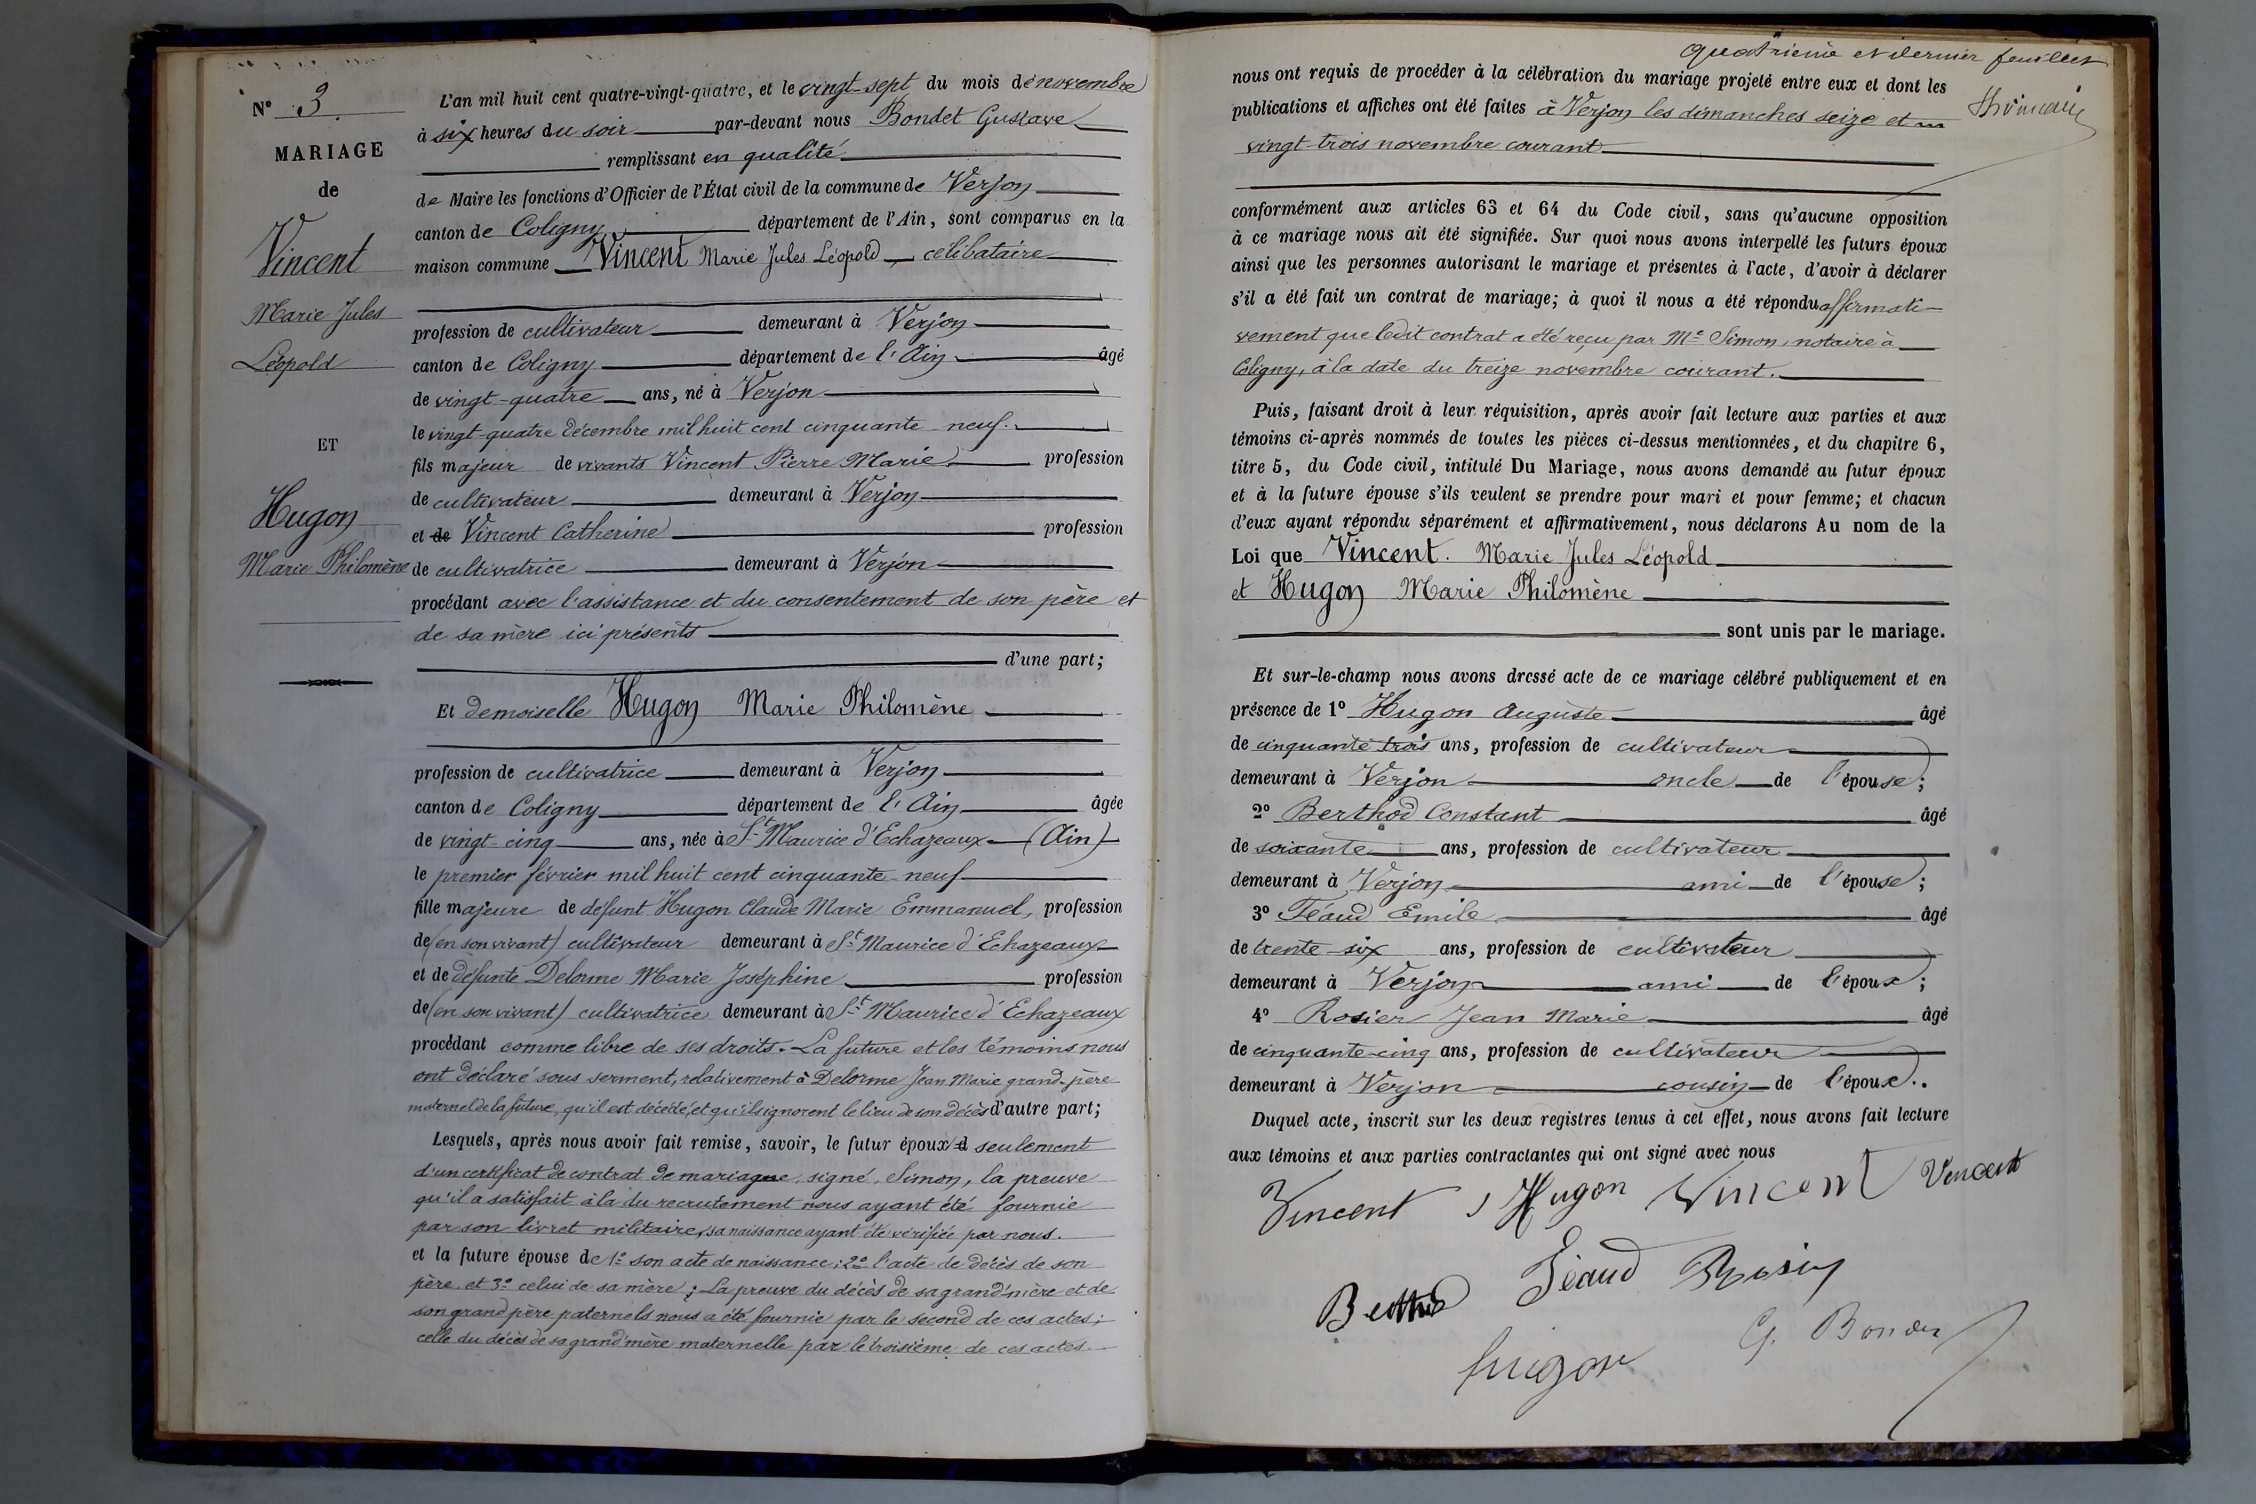 N° 3.
MARIAGE
de
Vincent
Marie Jules
Léopold
ET
Hugon
Marie Philomène
L'an mil huit cent quatre-vingt-quatre, et le vingt-sept du mois de novembre
à six heures du soir par-devant nous Bondet Gustave
remplissant en qualité
de Maire les fonctions d'Officier de l'État civil de la commune de Verjon
canton de Coligny département de l'Ain, sont comparus en la
maison commune Vincent Marie Jules Léopold, célibataire
profession de cultivateur demeurant à Verjon
canton de Coligny département de l'Ain âgé
de vingt-quatre ans, né à Verjon
le vingt-quatre décembre mil huit cent cinquante neuf.
fils majeur de vivants Vincent Pierre Marie profession
de cultivateur demeurant à Verjon
et de Vincent Catherine profession
de cultivatrice demeurant à Verjon
procédant avec l'assistance et du consentement de son père et
de sa mère ici présents
d'une part;
Et demoiselle Hugon Marie Philomène
profession de cultivatrice demeurant à Verjon
canton de Coligny département de l'Ain âgée
de vingt-cinq ans, née à St Maurice d'Echazeaux (Ain)
le premier février mil huit cent cinquante-neuf
fille majeure de défunt Hugon Claude Marie Emmanuel, profession
de (en son vivant) cultivateur demeurant à St Maurice d'Echazeaux
et de défunte Delorme Marie Joséphine profession
de (en son vivant) cultivatrice demeurant à St Maurice d'Echazeaux
procédant comme libre de ses droits. La future et les témoins nous
ont déclaré sous serment, relativement à Delorme Jean Marie grand-père
maternel de la future, qu'il est décédé, et qu'ils ignorent le lieu de son décès d'autre part;
Lesquels, après nous avoir fait remise, savoir, le futur époux d seulement
d'un certificat de contrat de mariage signé Simon, la preuve
qu'il a satisfait à la du recrutement nous ayant été fournie
par son livret militaire, sa naissance ayant été vérifiée par nous.
et la future épouse de 1° son acte de naissance; 2° l'acte de décès de son
père et 3° celui de sa mère; La preuve du décès de sa grand'mère et de
son grand père paternels nous a été fournie par le second de ces actes;
celle du décès de sa grand'mère maternelle par le troisième de ces actes.
quatrième et dernier feuillet
nous ont requis de procéder à la célébration du mariage projeté entre eux et dont les
publications et affiches ont été faites à Verjon les dimanches seize et
vingt-trois novembre courant
conformément aux articles 63 et 64 du Code civil, sans qu'aucune opposition
à ce mariage nous ait été signifiée. Sur quoi nous avons interpellé les futurs époux
ainsi que les personnes autorisant le mariage et présentes à l'acte, d'avoir à déclarer
s'il a été fait un contrat de mariage; à quoi il nous a été répondu affirmati-
vement que ledit contrat a été reçu par Me Simon, notaire à
Coligny, à la date du treize novembre courant.
Puis, faisant droit à leur réquisition, après avoir fait lecture aux parties et aux
témoins ci-après nommés de toutes les pièces ci-dessus mentionnées, et du chapitre 6,
titre 5, du Code civil, intitulé Du Mariage, nous avons demandé au futur époux
et à la future épouse s'ils veulent se prendre pour mari et pour femme; et chacun
d'eux ayant répondu séparément et affirmativement, nous déclarons Au nom de la
Loi que Vincent. Marie Jules Léopold
et Hugon Marie Philomène
sont unis par le mariage.
Et sur-le-champ nous avons dressé acte de ce mariage célébré publiquement et en
présence de 1° Hugon Auguste âgé
de cinquante trois ans, profession de cultivateur
demeurant à Verjon oncle de l'épouse;
2° Berthod Constant âgé
de soixante ans, profession de cultivateur
demeurant à Verjon ami de l'épouse;
3° Féaud Emile âgé
de trente-six ans, profession de cultivateur
demeurant à Verjon ami de l'époux;
4° Rosier Jean Marie âgé
de cinquante-cinq ans, profession de cultivateur
demeurant à Verjon cousin de l'époux.
Duquel acte, inscrit sur les deux registres tenus à cet effet, nous avons fait lecture
aux témoins et aux parties contractantes qui ont signé avec nous
Vincent Hugon Vincent Vincent
Féaud
Hugon G. Bondet